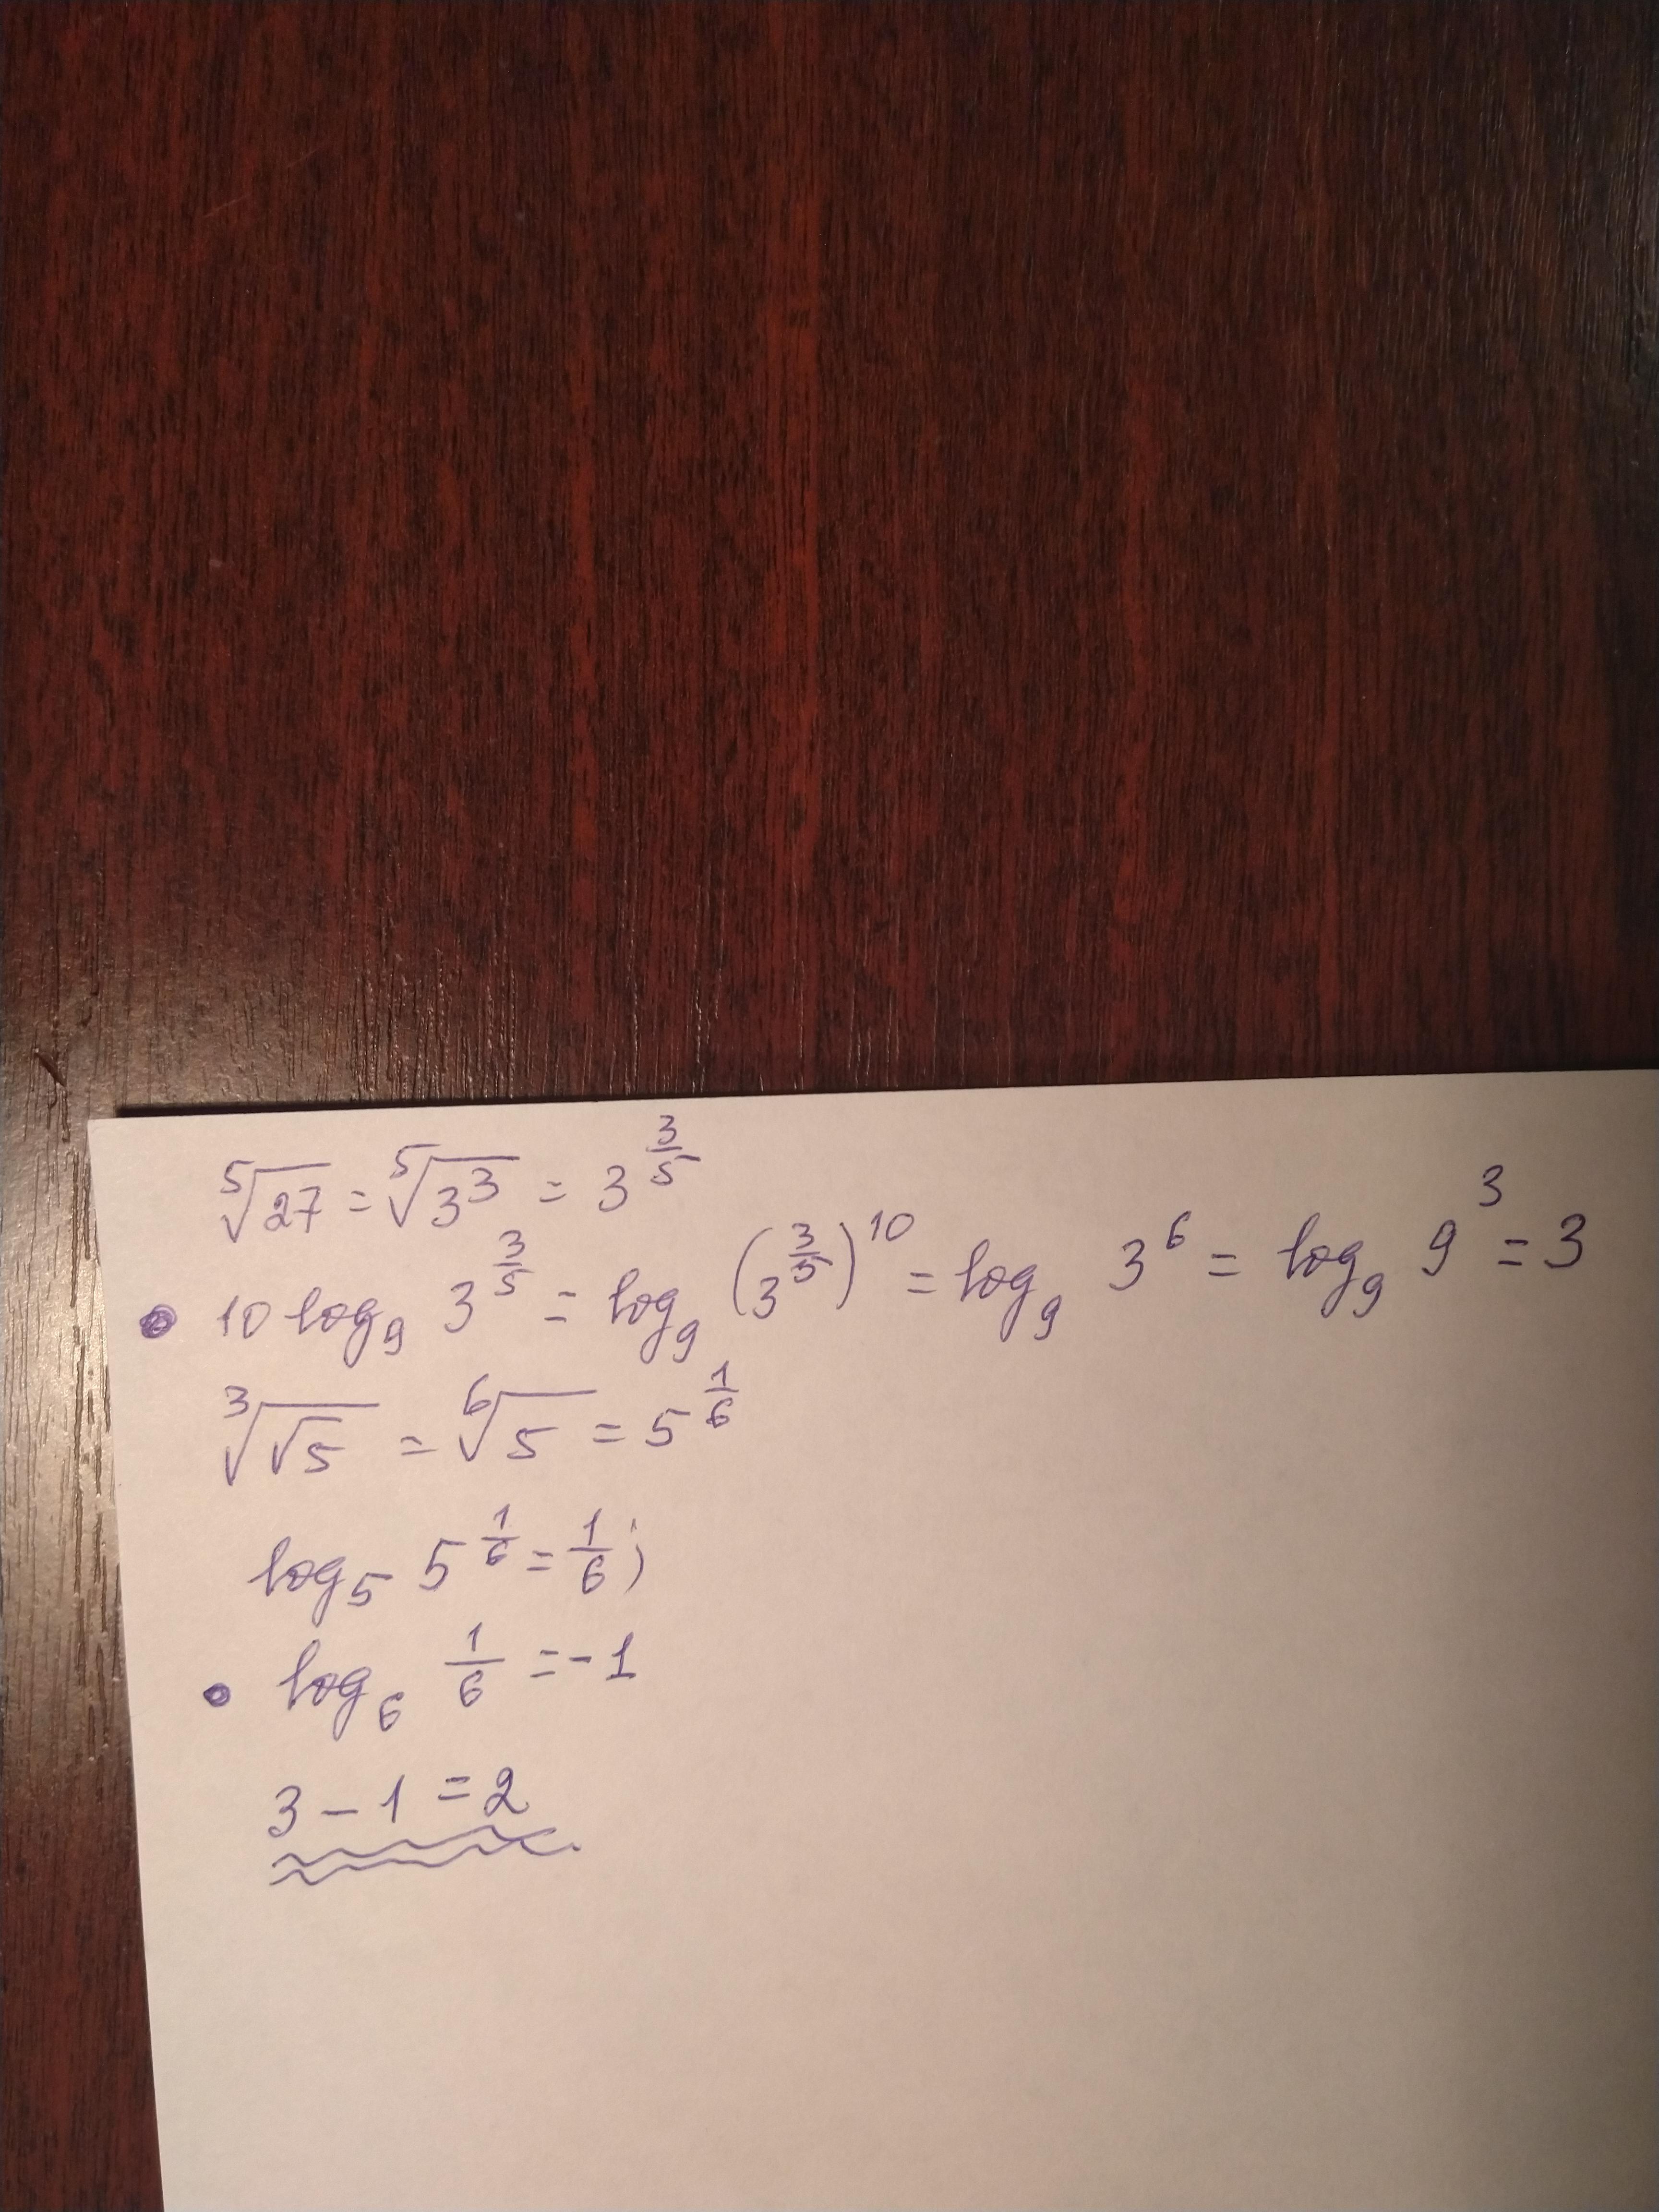 ⁵√27 = ⁵√3³ = 3^(3/5)
• 10 log₉ 3^(3/5) = log₉ (3^(3/5))^10 = log₉ 3⁶ = log₉ 9³ = 3
³√√5 = ⁶√5 = 5^(1/6)
log₅ 5^(1/6) = 1/6;
• log₆ 1/6 = -1
3 - 1 = 2